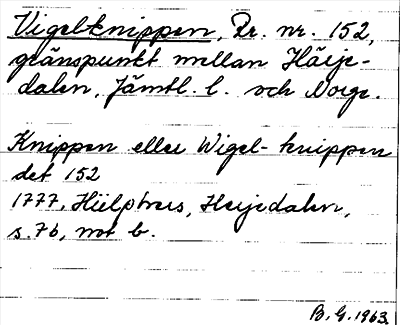 Vigelknippen, Rr. nr. 152,
gränspunkt mellan Härje-
dalen, Jämtl. l. och Norge.
Knippen eller Wigel-knippen
det 152
1777, Hülphers, Herjedalen,
s. 76, not b.
B. G. 1963.